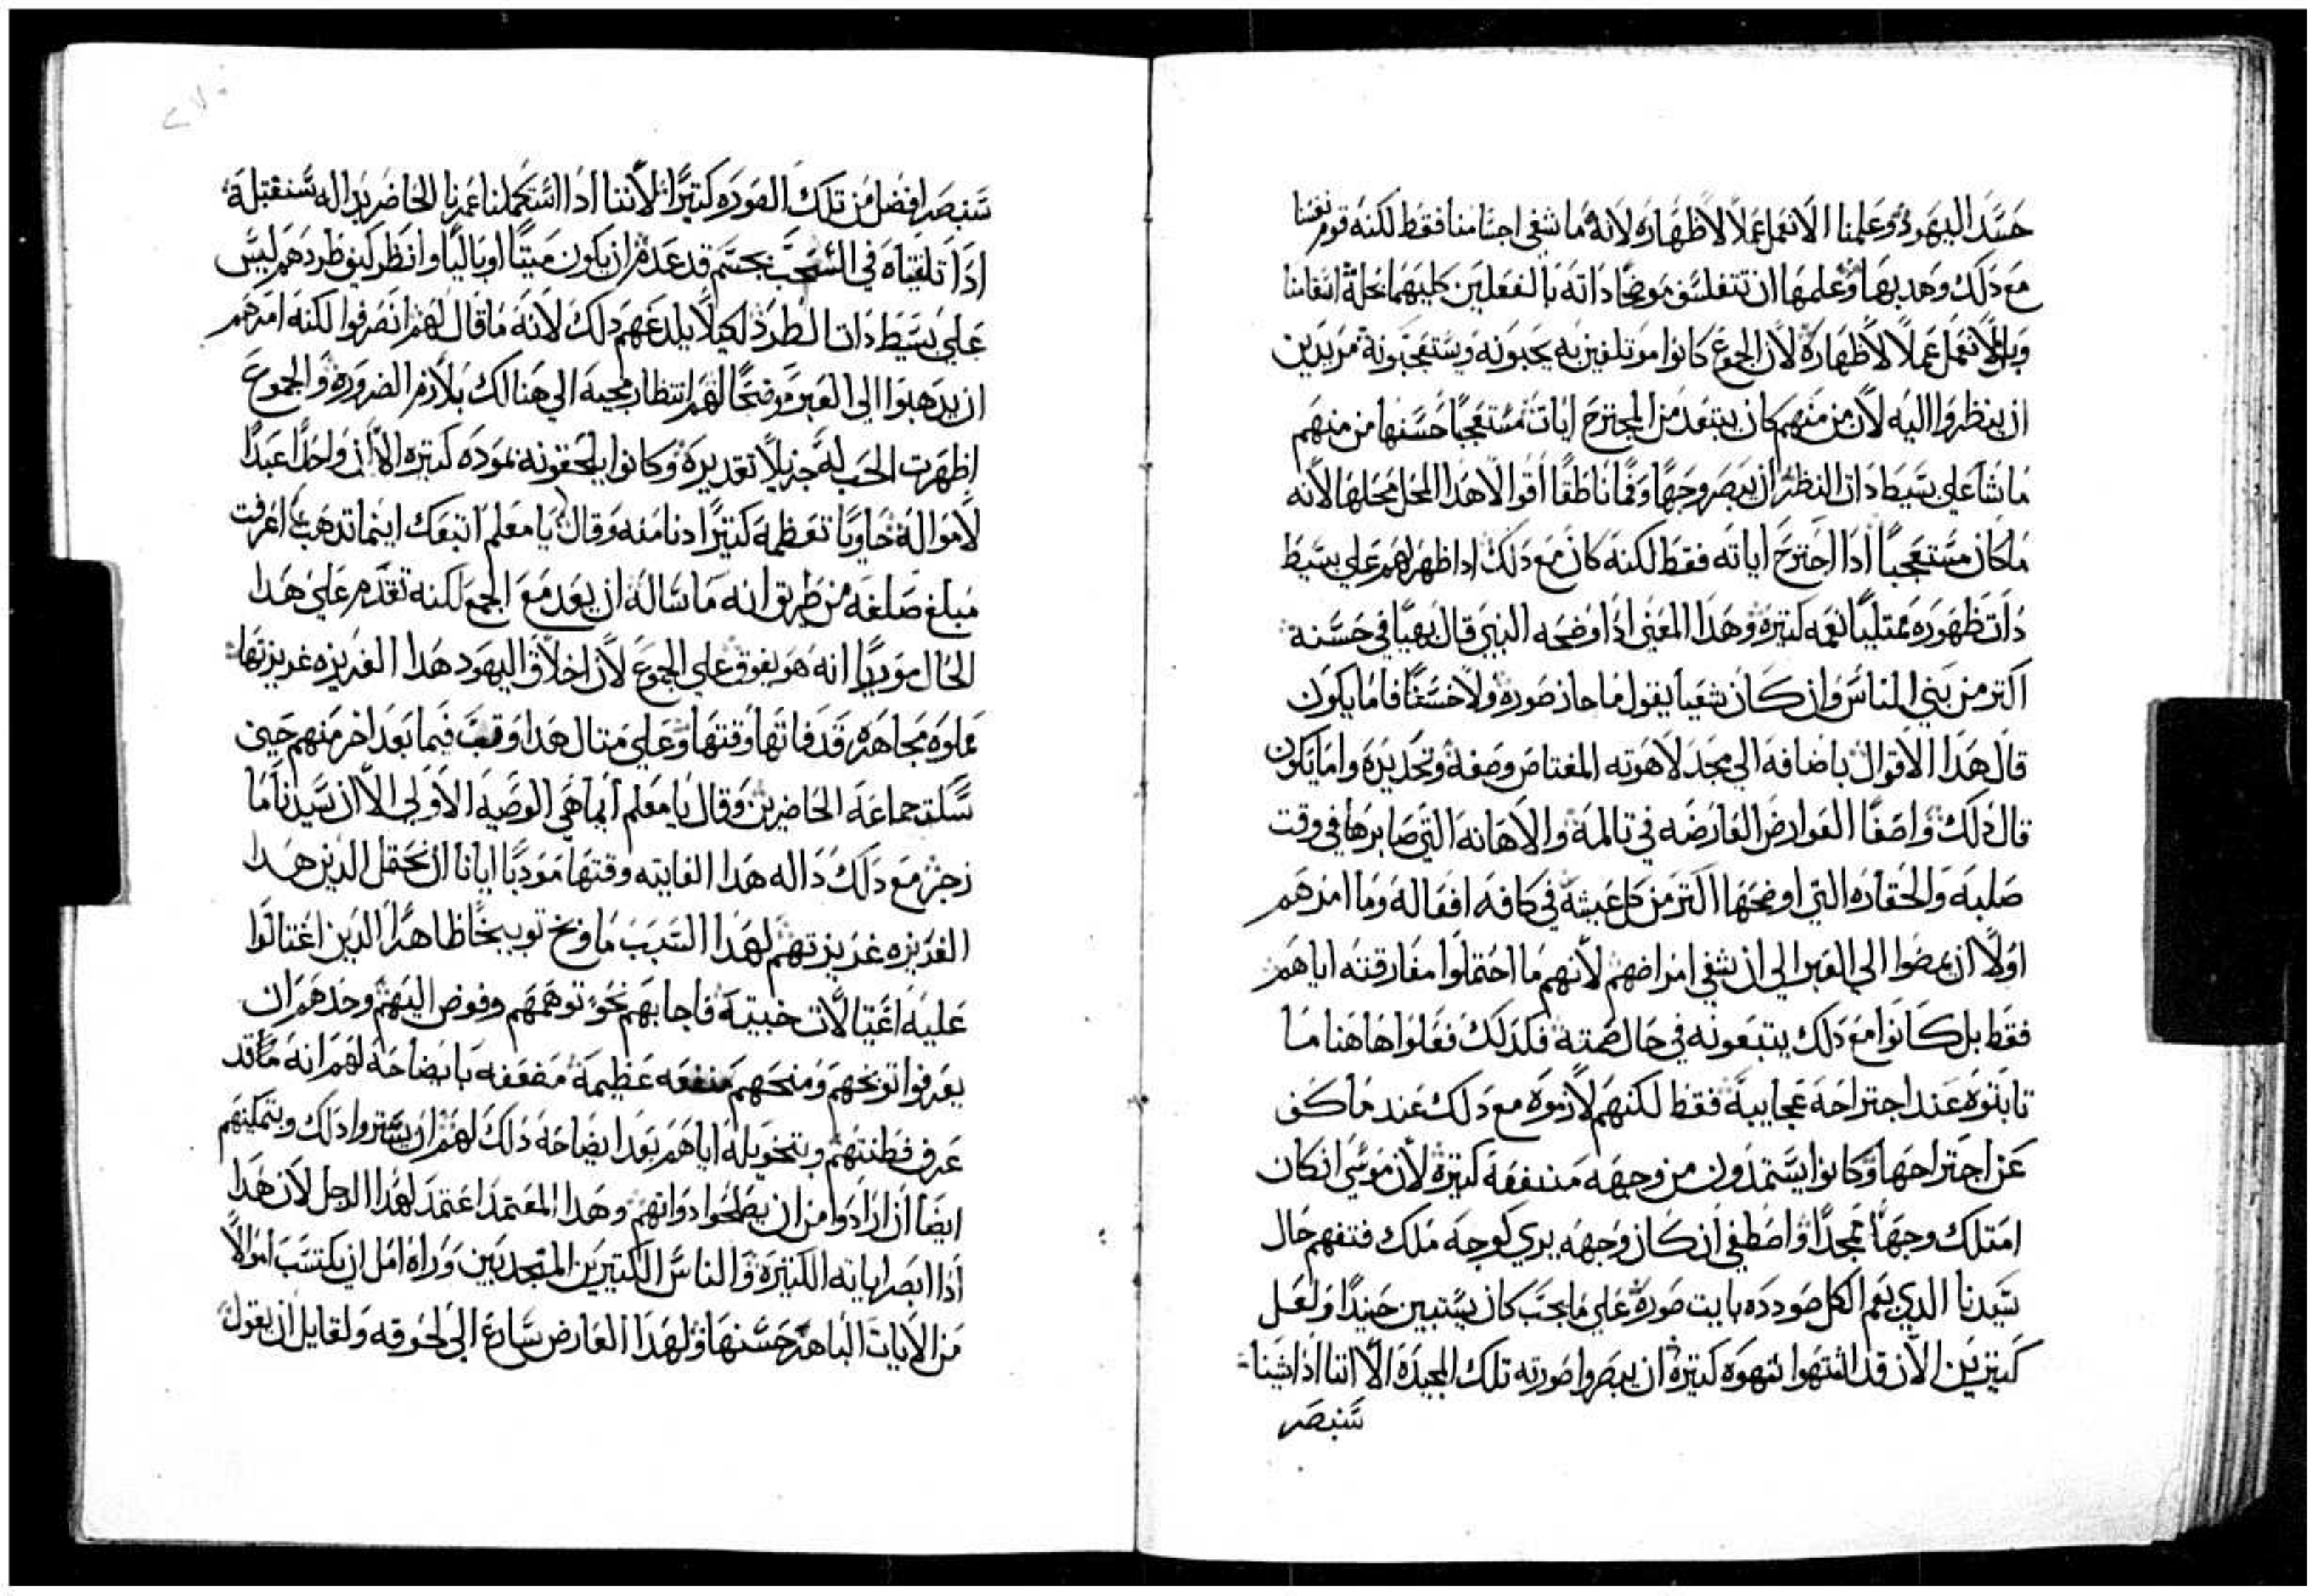 حسد اليهود وعلمنا الا نعمل عملاً لاظهاره لانه ما شفى اجسامنا فقط لكنه قوم نفسنا
مع ذلك وهدبها وعلمها ان تتفلسف موضحًا داته بالفعلين كليهما بحله اسقامنا
وبالا نعمل عملاً لاظهاره لان الجموع كانوا موتلفين به يحبونه ويستعجبونه مريدين
ان ينظروا اليه لان من منهم كان يبتعد من المجترح ايات مستعجبًا حسنها من منهم
ما شا على بسيط دات النظر ان يبصر وجهًا وفمًا ناطقًا اقوالا هذا المحل محلها لانه
ما كان مستعجبًا اذا اجترح اياته فقط لكنه كان مع ذلك اذا ظهر لهم على بسيط
دات ظهوره ممتليًا نعمه كتيره وهذا المعنى اذا اوضحه النبي قال بهيًا في حسنه
اكتر من بني الناس وان كان شعيا يقول ما حاز صوره ولا حسنًا فاما يكون
قال هذا الاقوال باضافه الى مجد لاهوته المعتاص وصفه وتحديده واما يكون
قال ذلك واصفًا العوارض العارضه في تالمه والاهانه التي صابرها في وقت
صلبه والحقاره التي اوضحها اكتر من كل عيشه في كافه افعاله وما امرهم
اولاً ان يمضوا الى العبر الى ان شفى امراضهم لانهم ما احتملوا مفارقته اياهم
فقط بل كانوا مع ذلك يتبعونه في حال صمته فكذلك فعلوا هاهنا ما
تابتوه عند اجتراحه عجايبه فقط لكنهم لازموه مع ذلك عند ما كف
عن اجتراحها وكانوا يستمدون من وجهه منفعه كتيره لان موسى ان كان
امتلك وجهًا ممجدًا واصطفى ان كان وجهه يرى كوجه ملك فتفهم حال
سيدنا الذي يعم الكل جوده بايت صوره على ما يجب كان يستبين حينيدًا ولعل
كتيرين الان قد اشتهوا شهوه كتيره ان يبصروا صورته تلك المجيده الا اننا اذا شينا
سنبصر
سنبصر افضل من تلك الصوره كتيرًا لاننا اذا استكملنا عمرنا الحاضر بداله سنقتبله
اذا تلقيناه في السحب بجسم قد عدم ان يكون ميتًا او باليًا وانظر كيف طردهم ليس
على بسيط دات الطرد لكيلا يلدعهم ذلك لانه ما قال لهم انصرفوا لكنه امرهم
ان يدهبوا الى العبر موضحًا لهم انتظار مجيه الى هنالك بلازم الضروره والجموع
اظهرت الحب له جزيلاً تقديره وكانوا يلحقونه بموده كتيره الا ان واحدًا عبدًا
لامواله حاويًا تعظمه كتيرًا دنا منه وقال يا معلم اتبعك اينما تدهب اعرفت
مبلغ صلفه من طريق انه ما ساله ان يعد مع الجمع لكنه تقدم على هذا
الحال موريًا انه هو يفوق على الجموع لان اخلاق اليهود هذا الغريزه غريزتها
مملوه مجاهره قد فاتها وقتها وعلى متال هذا وقف فيما بعد اخر منهم حين
سكت جماعه الحاضرين وقال يا معلم ايما هي الوصيه الاولى الا ان سيدنا ما
زجر مع ذلك داله هذا الفايته وقتها مودبًا ايانا ان نحتمل الذين هذا
الغريزه غريزتهم لهذا السبب ما وبخ توبيخًا ظاهرًا الذين اغتالوا
عليه اغتيالات خبيته فاجابهم نحو توهمهم وفوض اليهم وحدهم ان
يعرفوا توبخهم ومنحهم منفعه عظيمه مضعفه بايضاحه لهم انه ما قد
عرف فطنتهم وبتخويله اياهم بعد ايضاحه ذلك لهم ان يستروا ذلك وبتمكينهم
ايضًا ان ارادوا من ان يصلحوا دواتهم وهذا المعتمد اعتمد لهذا الرجل لان هذا
اذا ابصر اياته الكتيره والناس الكتيرين المنجدبين وراه امل ان يكتسب اموالاً
من الايات الباهر حسنها ولهذا العارض سارع الى لحوقه ولقايل ان يقول